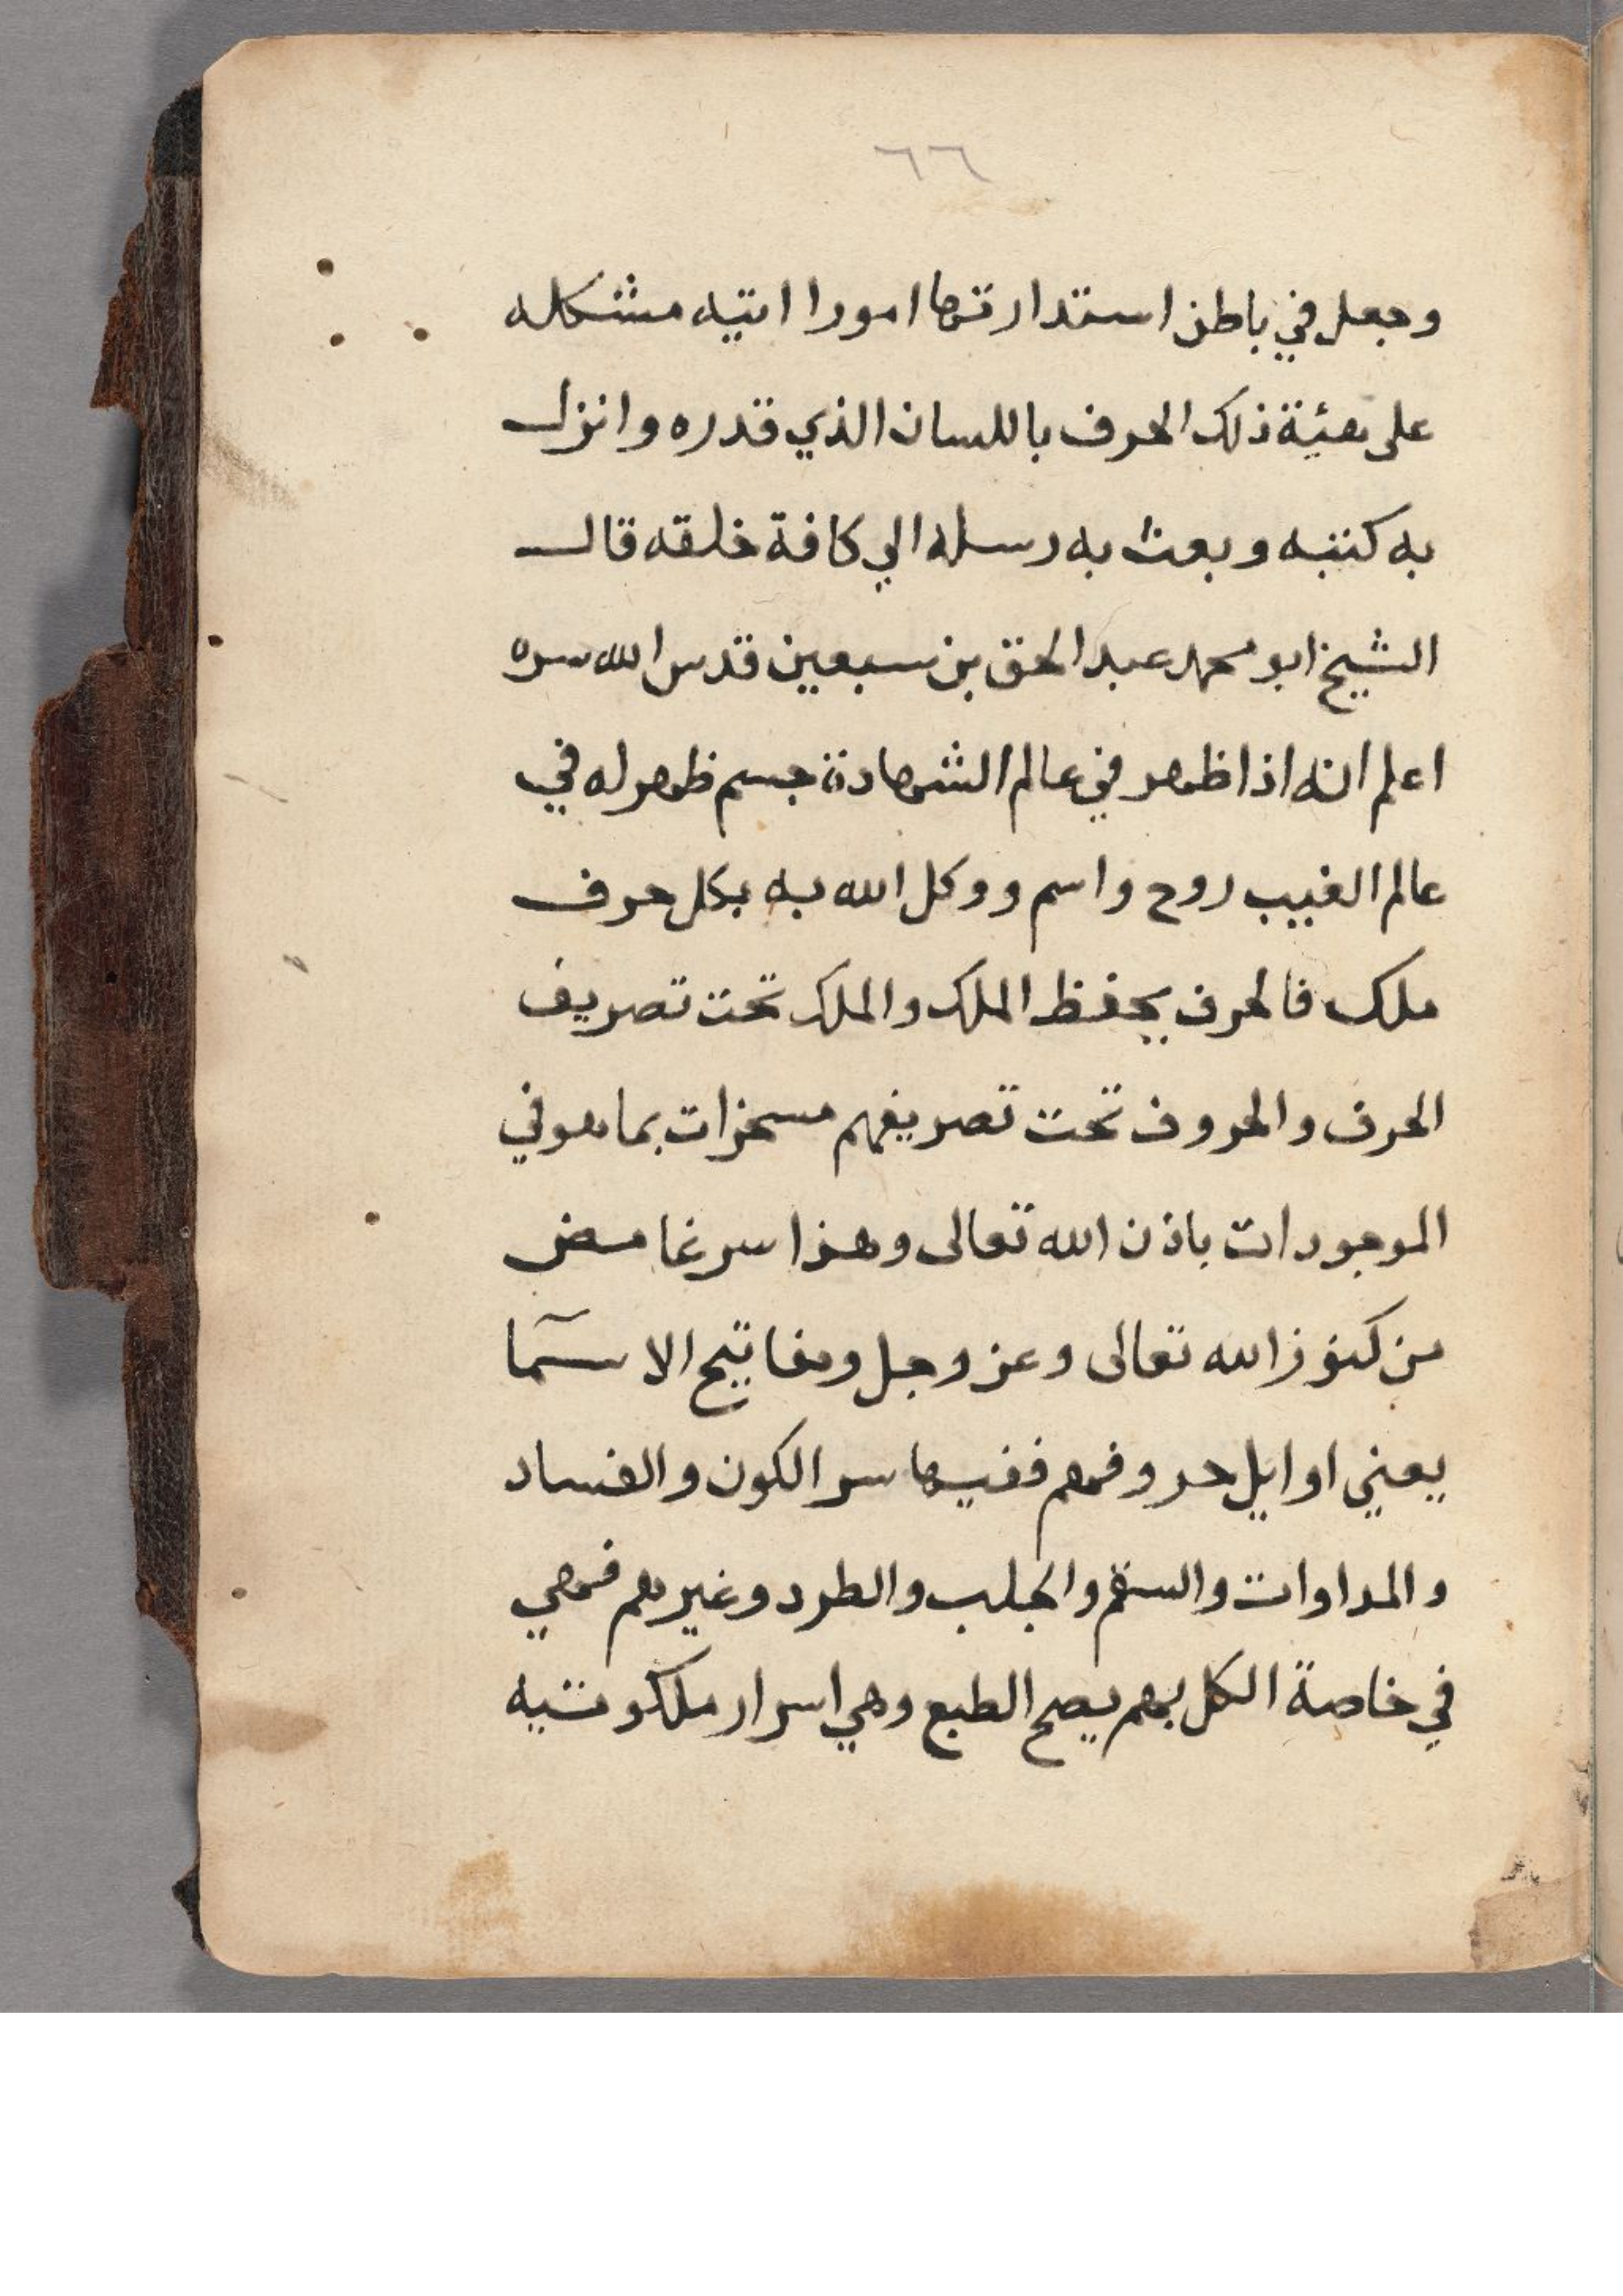 ٦٦
وجعل في باطن استدارتها امورا اتيه مشكله
على هئية ذلك الحرف باللسان الذي قدره وانزل
به كتبه وبعث به رسله الي كافة خلقه قال
الشيخ ابو محمد عبد الحق بن سبعين قدس الله سره
اعلم انه اذا ظهر في عالم الشهادة جسم ظهر له في
عالم الغيب روح واسم ووكل الله به بكل حرف
ملك فالحرف يحفظ الملك والملك تحت تصريف
الحرف والحروف تحت تصريفهم مسخرات بما هو في
الموجودات باذن الله تعالى وهذا سر غامض
من كنوز الله تعالى وعز وجل ومفاتيح الاسمآ
يعني اوايل حروفهم ففيها سر الكون والفساد
والمداوات والسقم والجلب والطرد وغيرهم فهي
في خاصة الكل بهم يصح الطبع وهي اسرار ملكوتيه